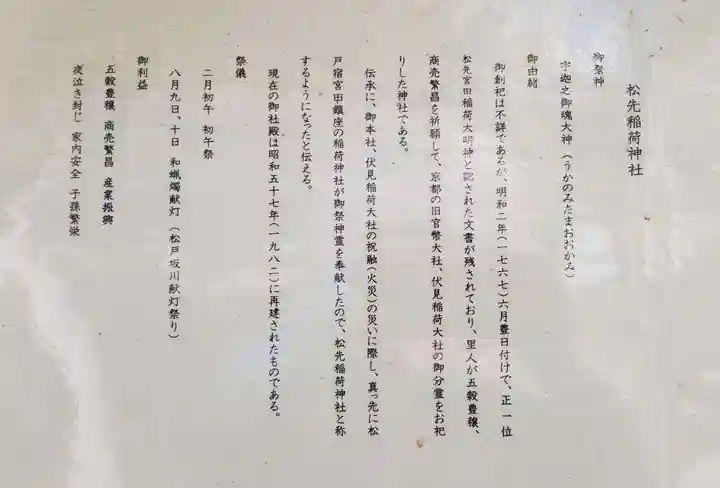 松先稲荷神社
御祭神
宇迦之御魂大神 (うかのみたまおおかみ)
御由緒
御創祀は不詳であるが、明和二年(一七六七)六月豊日付けで、正一位
松先宮田稲荷大明神と記された文書が残されており、里人が五穀豊穣、
商売繁昌を祈願して、京都の旧官幣大社、伏見稲荷大社の御分霊をお祀
りした神社である。
伝承に、御本社、伏見稲荷大社の祝融(火災)の災いに際し、真っ先に松
戸宿宮田鎮座の稲荷神社が御祭神霊を奉献したので、松先稲荷神社と称
するようになったと伝える。
現在の御社殿は昭和五十七年(一九八二)に再建されたものである。
祭儀
二月初午 初午祭
八月九日、十日 和蝋燭献灯 (松戸坂川献灯祭り)
御利益
五穀豊穣 商売繁昌 産業振興
夜泣き封じ 家内安全 子孫繁栄